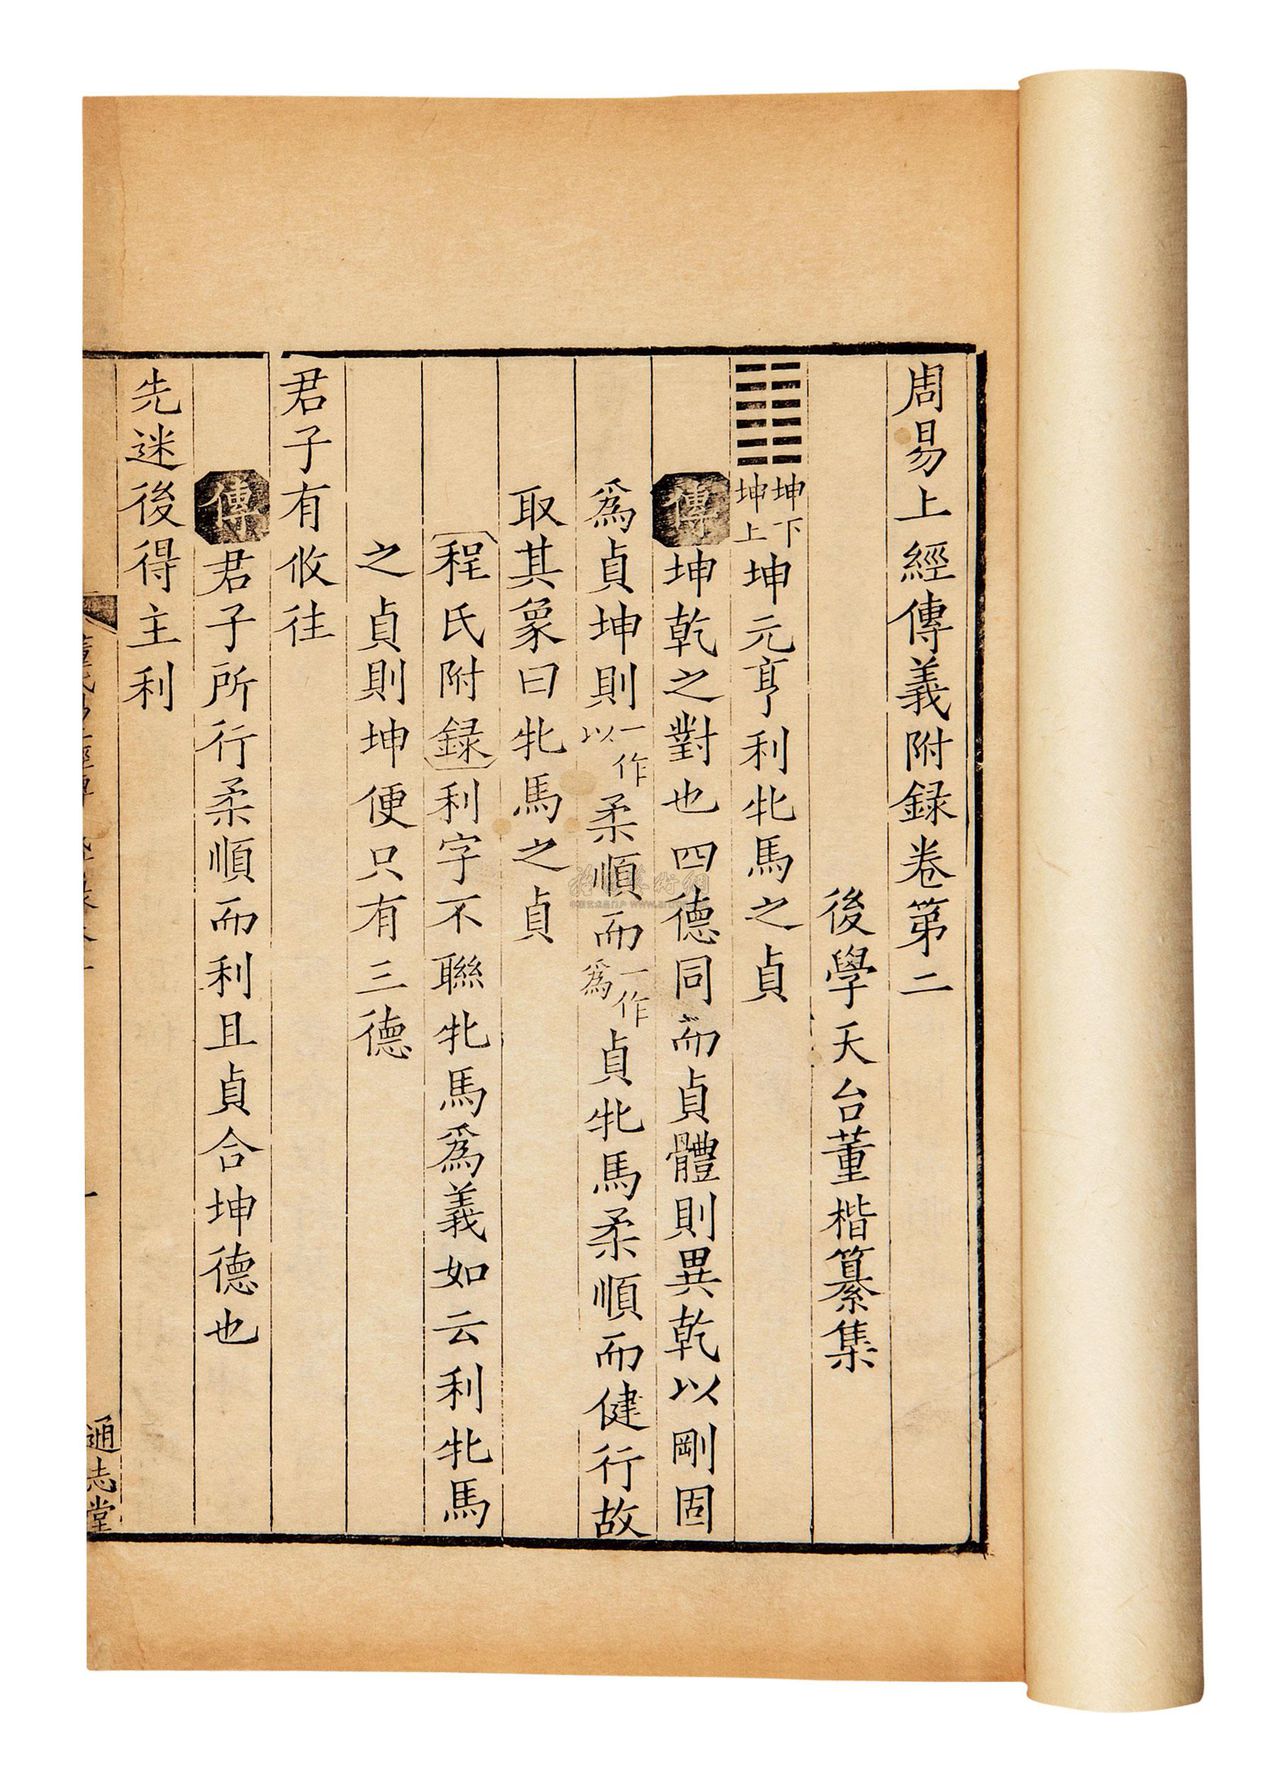 周易上經傳義附録卷第二
後學天台董楷纂集
坤下坤上坤元亨利牝馬之貞
傳坤乾之對也四德同而貞體則異乾以剛固
爲貞坤則一作以柔順而一作爲貞牝馬柔順而健行故
取其象曰牝馬之貞
程氏附録利字不聯牝馬爲義如云利牝馬
之貞則坤便只有三德
君子有攸往
傳君子所行柔順而利且貞合坤德也
先迷後得主利
通志堂